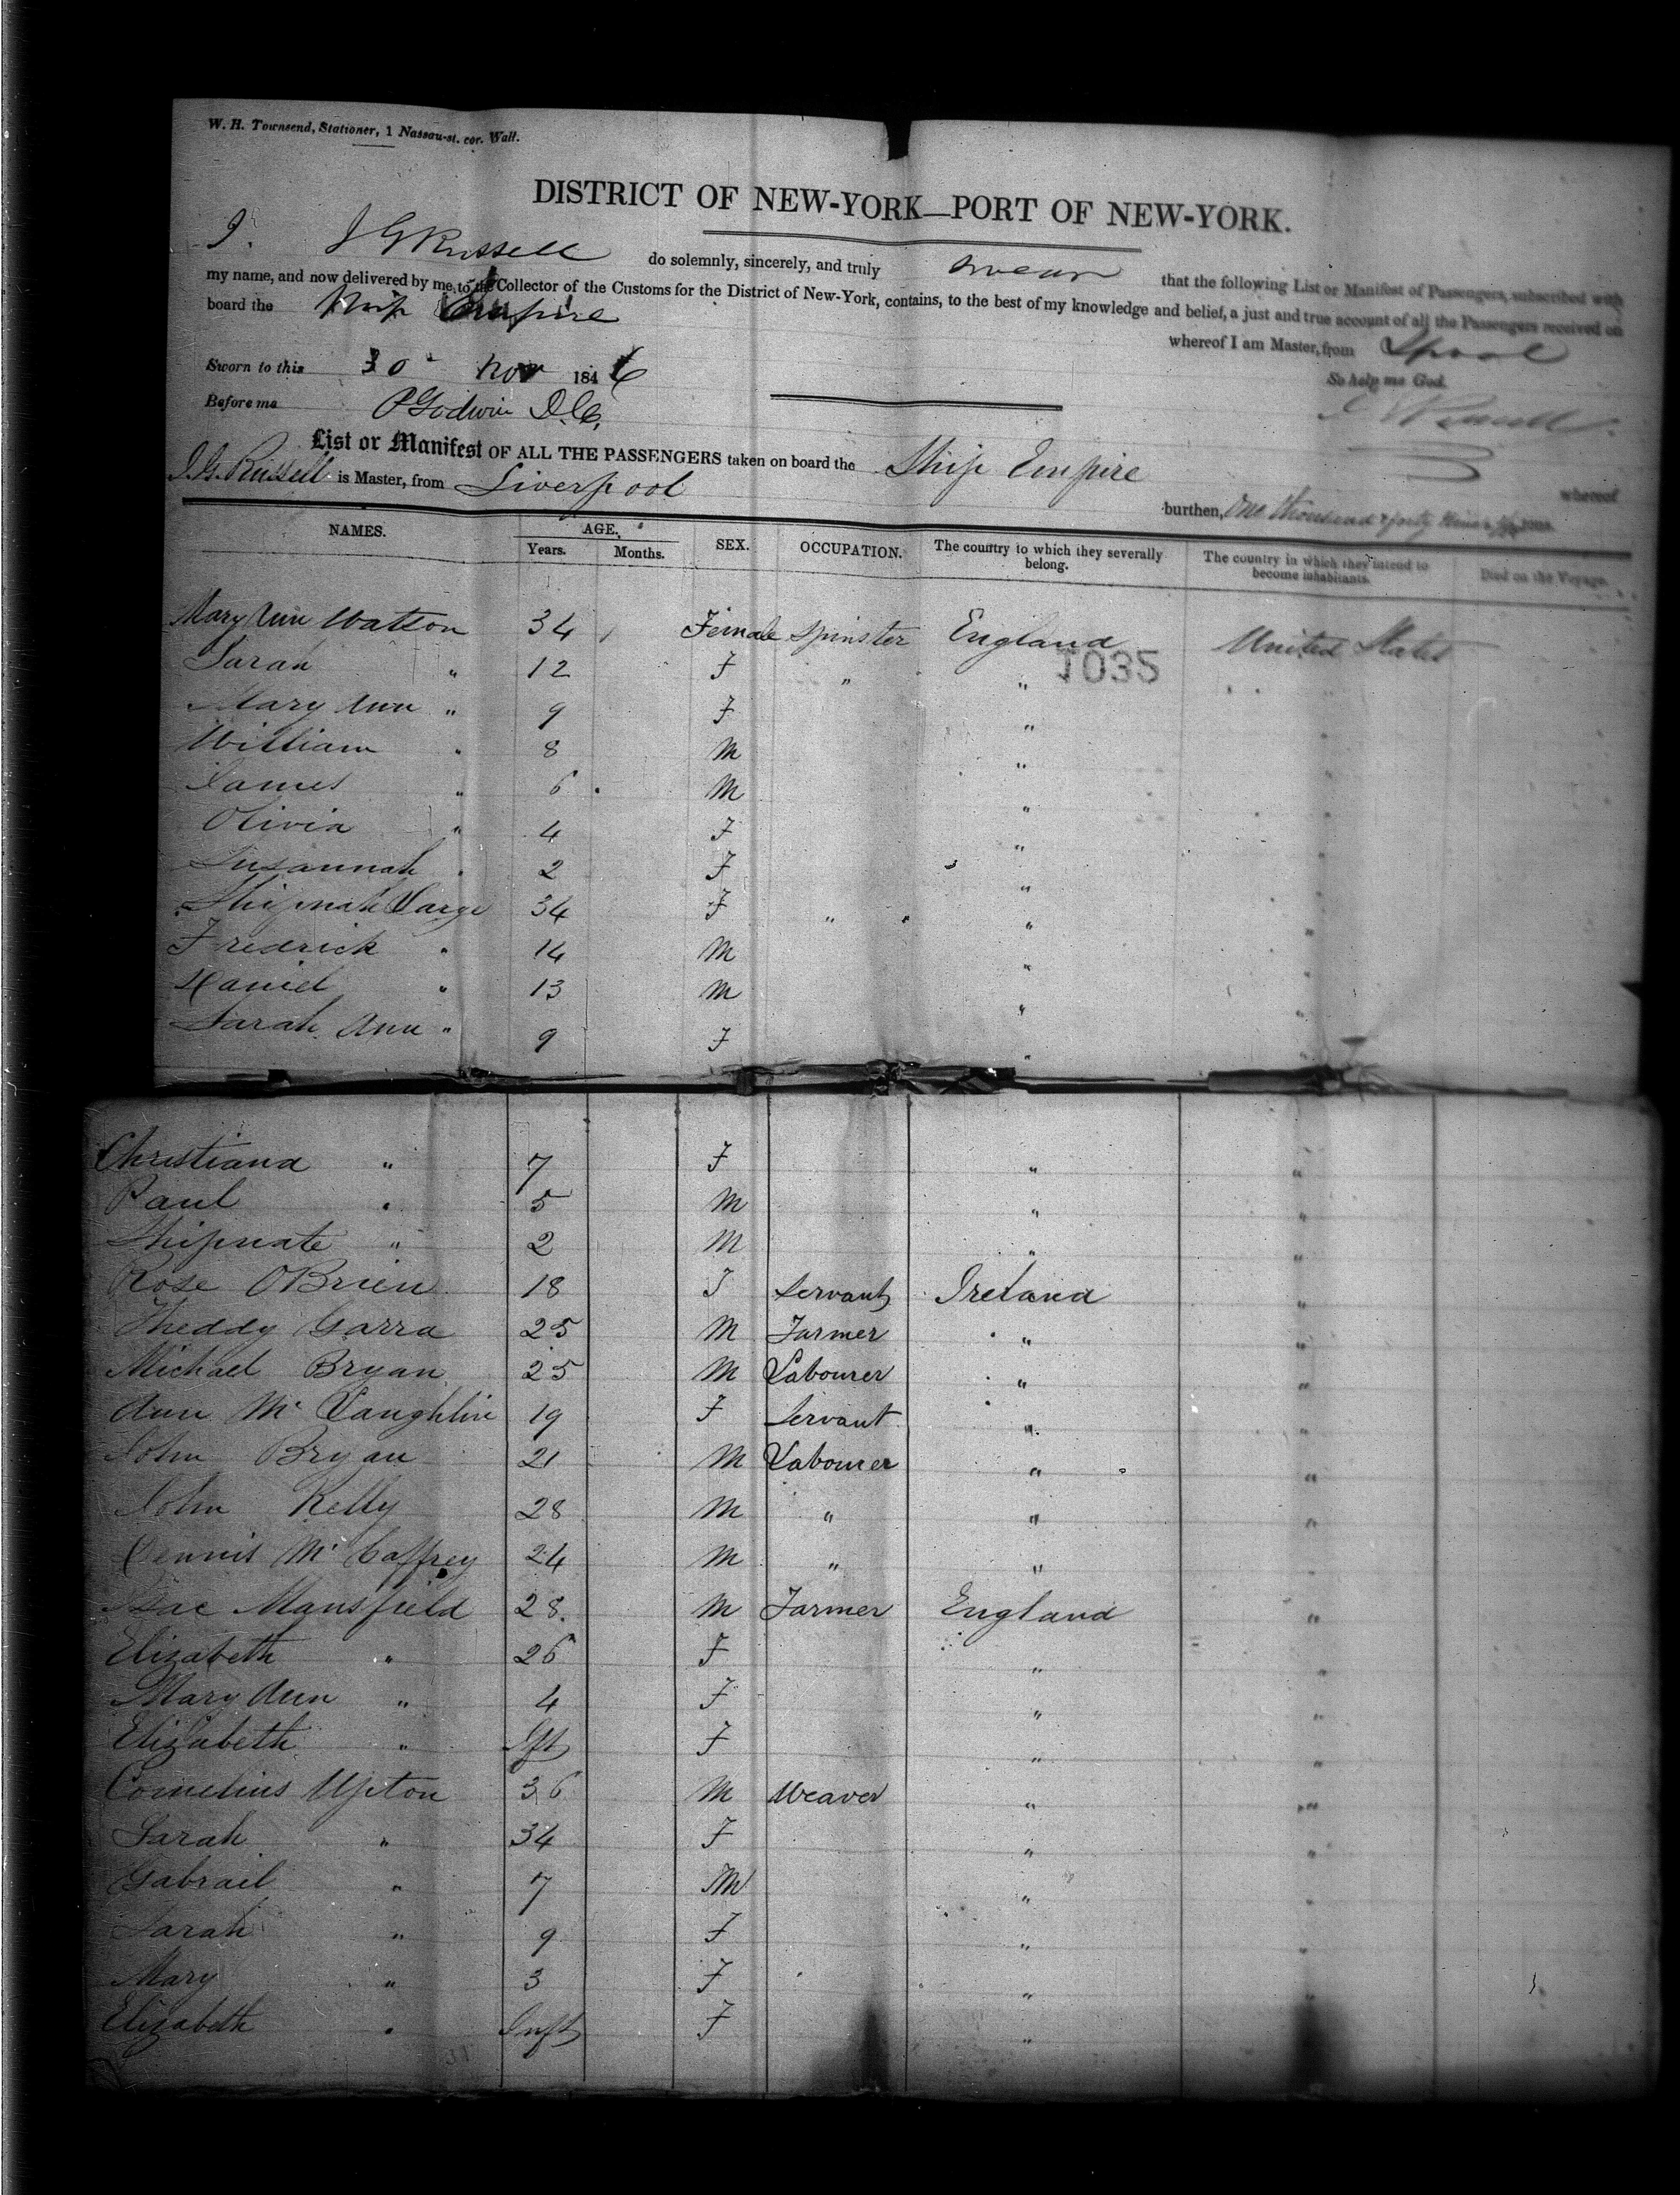 W. H. Townsend, Stationer, 1 Nassau-st. cor. Wall.
DISTRICT OF NEW-YORK—PORT OF NEW-YORK.
I. J G Russell do solemnly, sincerely, and truly swear that the following List or Manifest of Passengers, subscribed with
my name, and now delivered by me to the Collector of the Customs for the District of New-York, contains, to the best of my knowledge and belief, a just and true account of all the Passengers received on
board the Ship Empire whereof I am Master, from Lpool
Sworn to this 30 Nov 1846 So help me God.
Before me P Godwin D.C. J G Russell
List or Manifest OF ALL THE PASSENGERS taken on board the Ship Empire whereof
J. G. Russell is Master, from Liverpool burthen, One thousand & forty tons.
NAMES. AGE. SEX. OCCUPATION. The country to which they severally belong. The country in which they intend to become inhabitants. Died on the Voyage.
Years. Months.
Mary Ann Watson 34 Female Spinster England United States
1035
Sarah " 12 F " " "
Mary Ann " 9 F " "
William " 8 M " "
James " 6 M " "
Olivia " 4 F " "
Susannah " 2 F " "
Large 34 F " " "
Fredrick " 14 M " "
Daniel " 13 M " "
Sarah Ann " 9 F " "
Christiana " 7 F " "
Paul " 5 M " "
Shipnate " 2 M " "
Rose OBrien 18 F Servant Ireland "
Theddy Garra 25 M Farmer " "
Michael Bryan 25 M Labourer " "
Ann Mc Laughlin 19 F Servant " "
John Bryan 21 M Labourer " "
John Kelly 28 M " " "
Dennis Mc Caffrey 24 M " " "
Isac Mansfield 28 M Farmer England "
Elizabeth " 26 F " "
Mary Ann " 4 F " "
Elizabeth " Ift F " "
Cornelius Upton 36 M Weaver " "
Sarah " 34 F " "
Gabrail " 7 M " "
Sarah " 9 F " "
Mary " 3 F " "
Elizabeth " Inft F "